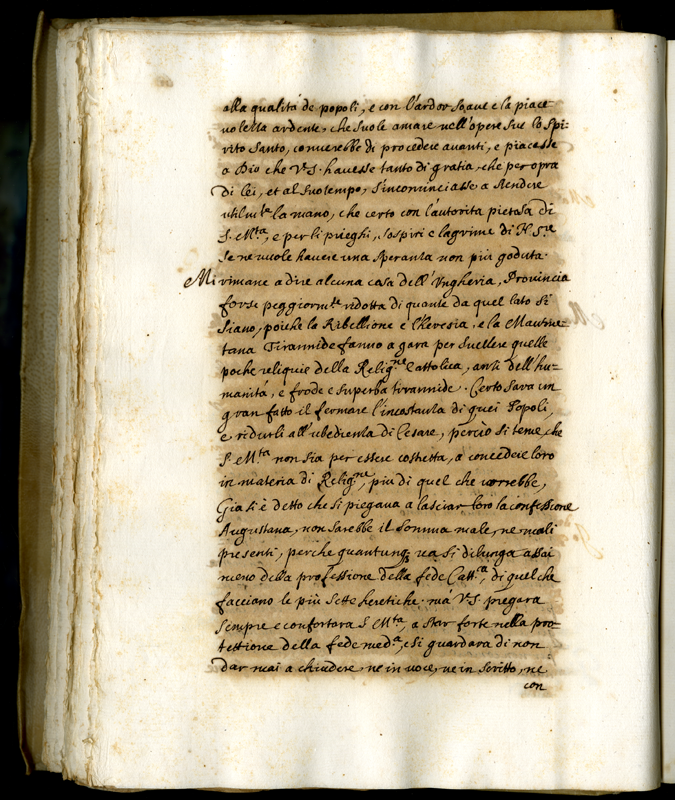 alla qualità de popoli, e con l'ardor soaue e la piace
uolezza ardente, che suole amare nell'opere sue lo Spi:
rito Santo, conuerebbe di procedere auanti, e piacesse
a Dio che V.S. hauesse tanto di gratia, che per opra
Di lei, et al suo tempo, s'incominciasse a stendere
utilmte la mano, che certo con l'autorita pietosa di
S. Mta, e per li prieghi, sospiri e lagrime di N. Sre
se ne uuole hauere una speranza non più goduta.
Mi rimane a dire alcuna cosa dell'Vngheria, Prouincia
forse peggiormte ridotta di quante da quel lato si
siano, poiche la Ribellione e l'heresia, e la Maume-
tana Tirannide fanno a gara per suellere quelle
poche reliquie della Religne Cattolica, anzi dell'hu-
manità, e frode e superba tirannide. Certo sara un
gran fatto il fermare l'incostanza di quei Popoli,
e ridurli all'ubedienza di Cesare, perciò si teme, che
S. Mta non sia per essere costretta, a concedere loro
in materia di Religne, piu di quel che uorrebbe,
Gia si è detto che si piegaua a lasciar loro la confessione
Augustana, non sarebbe il somma male, ne mali
presenti, perche quantunq ua si dilunga assai
meno della professione della fede Catt.a, di quel che
facciano le più sette heretiche. mà V.S. pregara
sempre e confortara S. Mta, a star forte nella pro-
tettione della fede med.a, e si guardara di non
dar mai a chiudere, ne in uoce, ne in scritto, ne
con